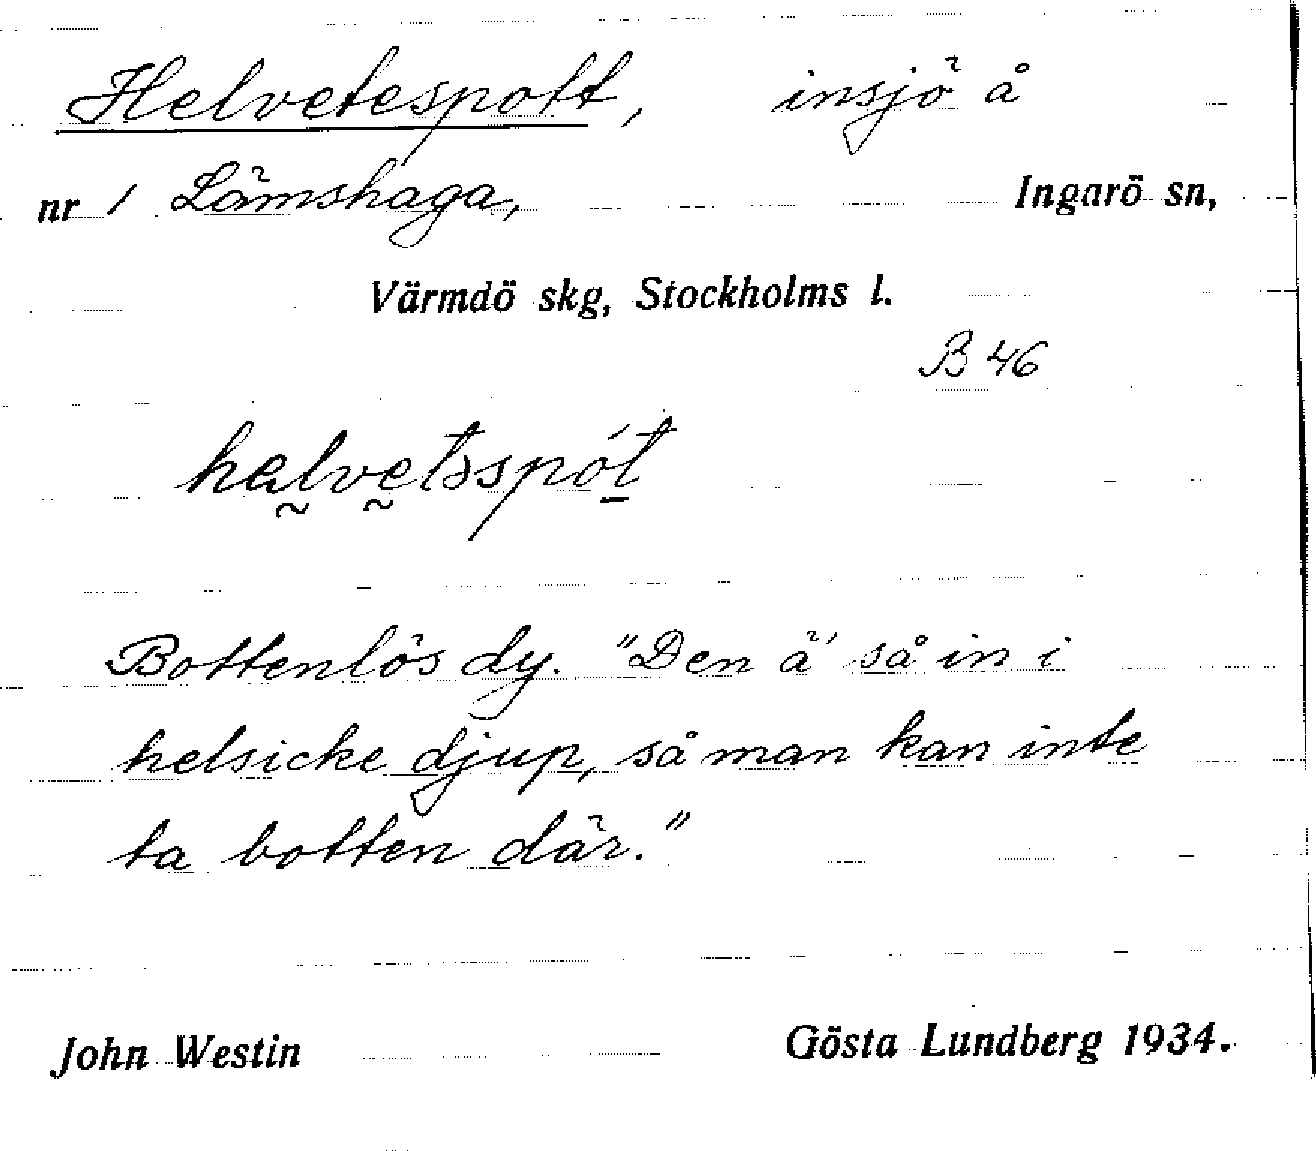 Helvetespott, insjö å
nr 1 Lämshaga, Ingarö sn,
Värmdö skg, Stockholms l.
B 46
helvetsspót
Bottenlös dy. "Den ä' så in i
helsicke djup, så man kan inte
ta botten där."
John Westin Gösta Lundberg 1934.